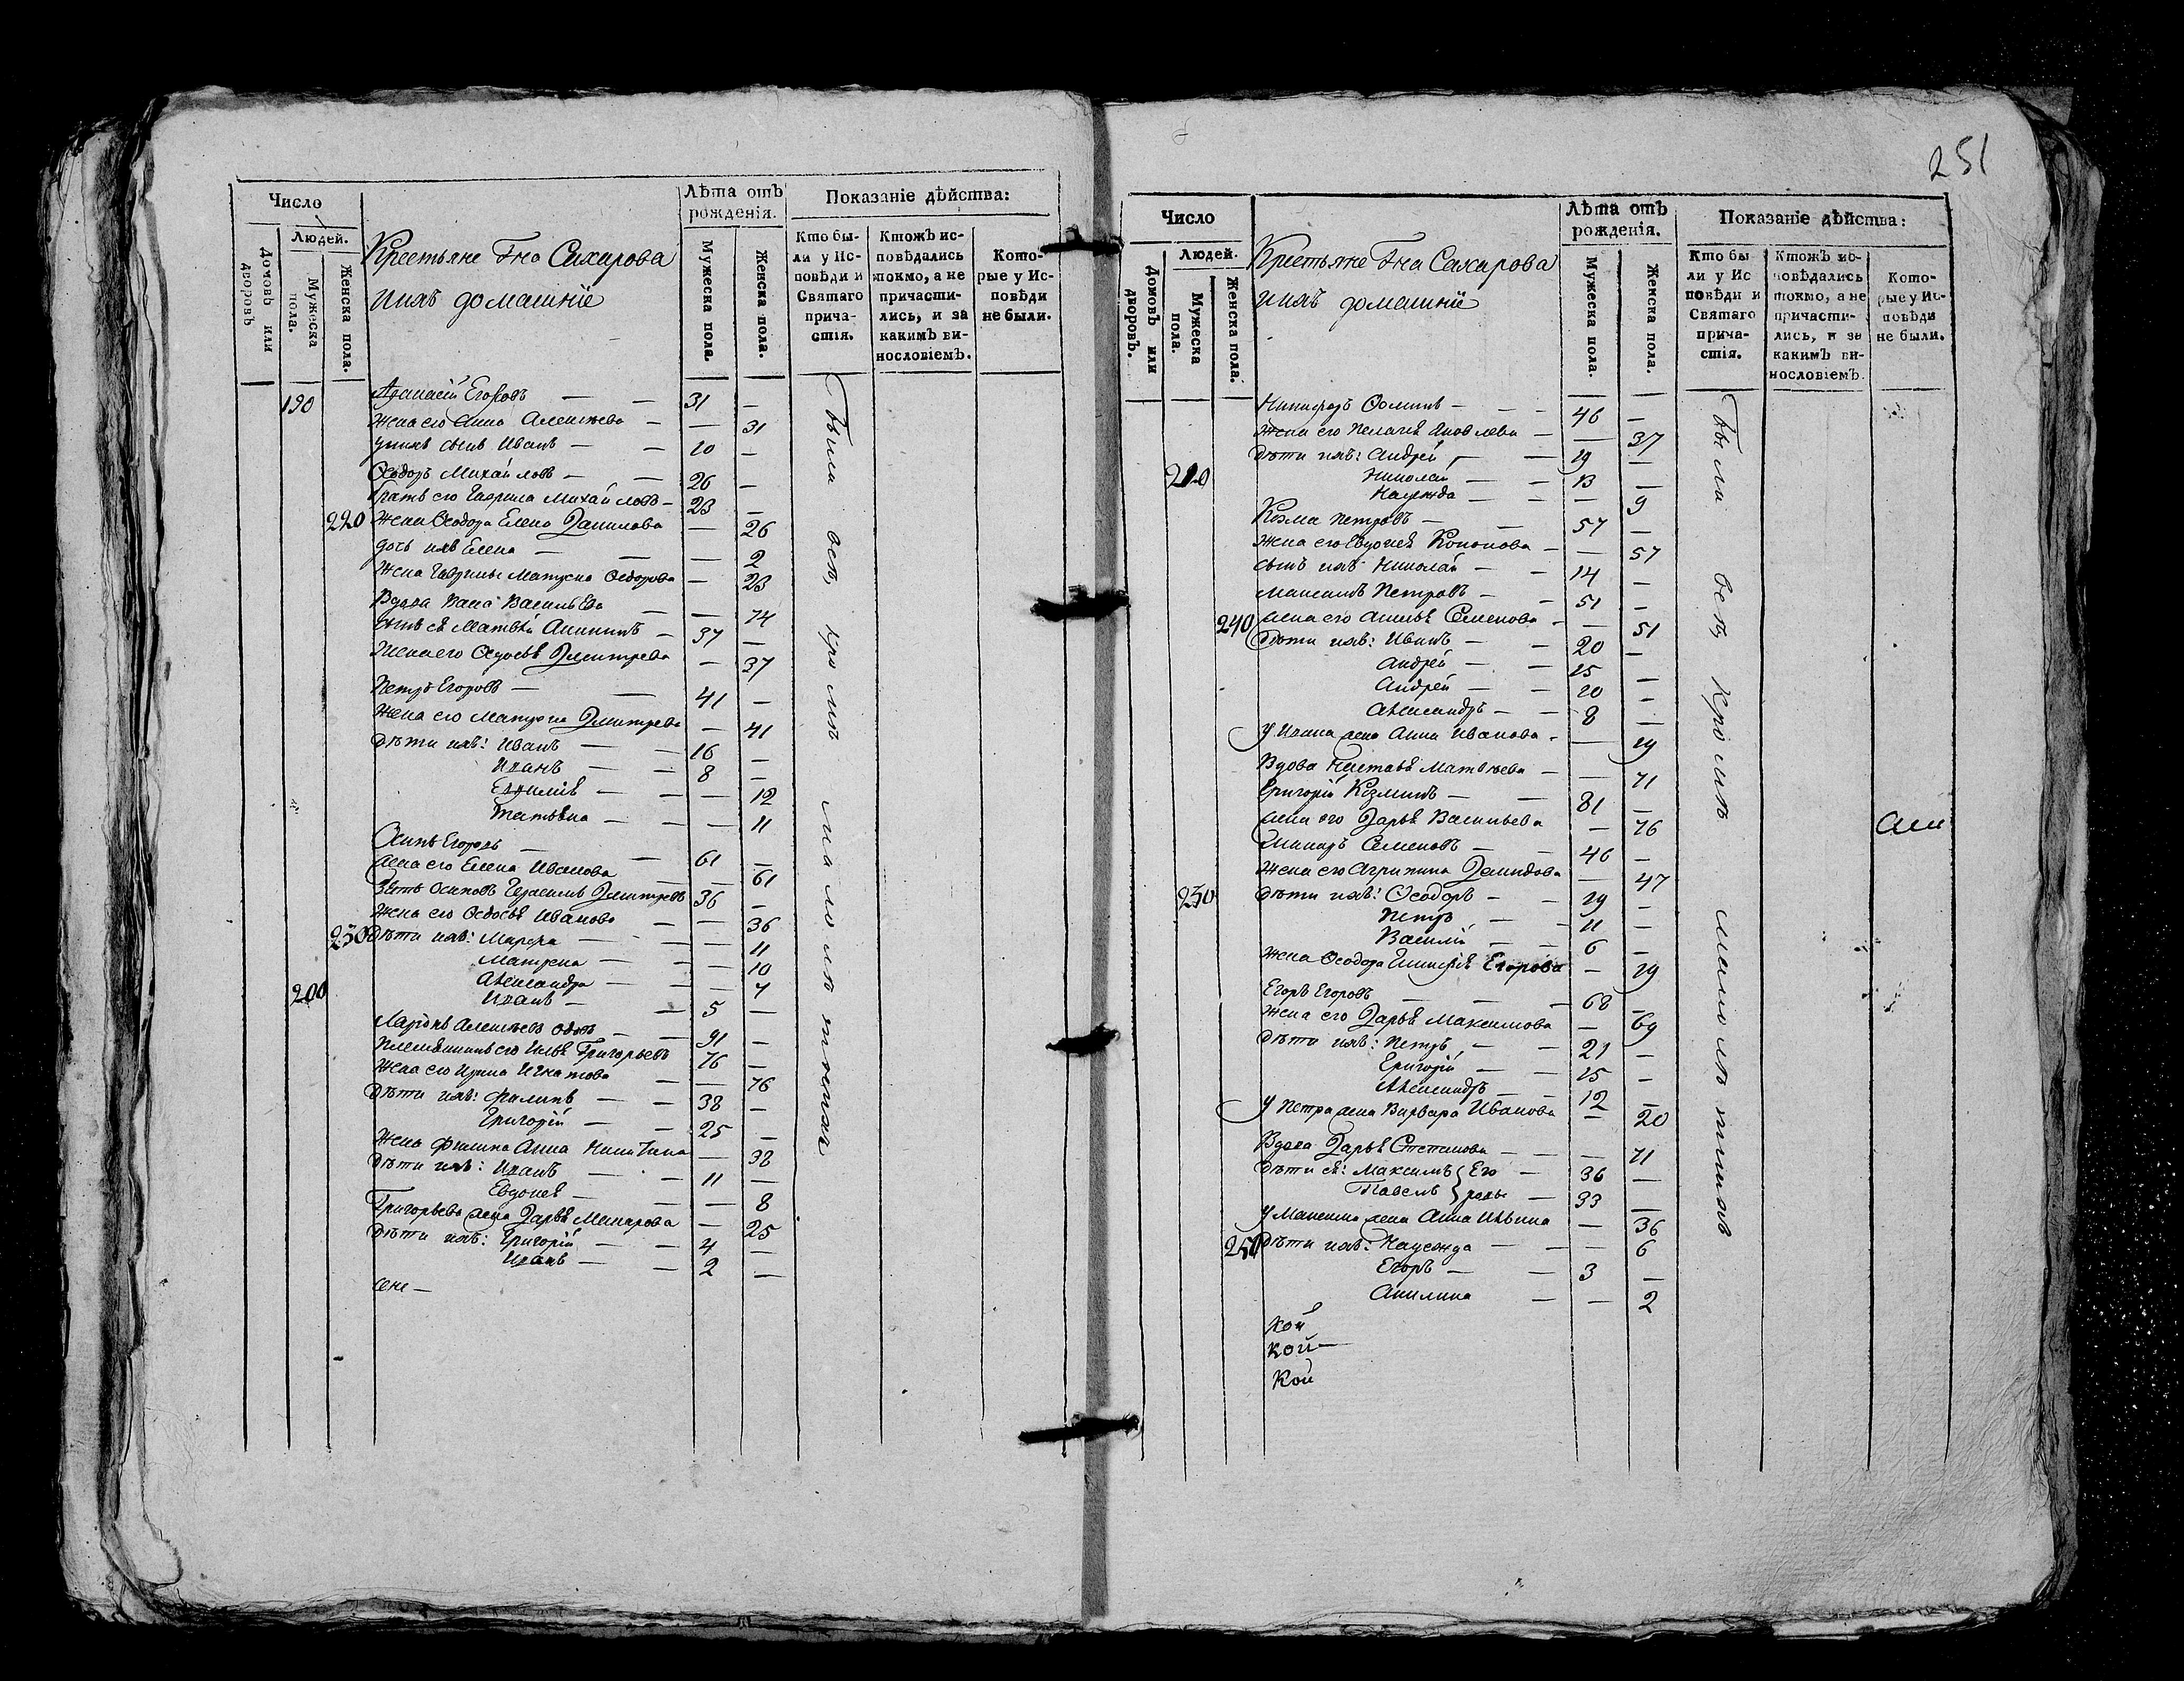 Число
Людей.
Домовъ или дворовъ
Мужеска пола.
Женска пола.
Крестьяне Гна Сахарова
и ихъ домашніе
Лѣта отъ рожденія.
Мужеска пола.
Женска пола.
Показаніе дѣйства:
Кто бы-
ли у Ис-
повѣди и
Святаго
прича-
стія.
Ктожъ ис-
повѣдались
токмо, а не
причасти-
лись, и за
какимъ ви-
нословіемъ.
Кото-
рые у Ис-
повѣди
не были.
190 Афанасій Егоровъ — — 31 —
Жена его Анна Алексѣева — — 31
у нихъ сынъ Иванъ — — 10 —
Ѳеодоръ Михайловъ — — 26 —
братъ его Гаврила Михайловъ — 23 —
220 Жена Ѳеодора Елена Данилова — 26
дочь ихъ Елена — — — 2
Жена Гаврилы Матрена Ѳедорова — 23
Вдова Васильева — — 74
сынъ ея Матвѣй — 37 —
Жена его Ѳедосья Дмитрева — 37
Петръ Егоровъ — — 41 —
Жена его Матрена Дмитрева — 41
Дѣти ихъ: Иванъ — — 16 —
Иванъ — — 8 —
— — — 12
Татьяна — — — 11
Осипъ Егоровъ — — 61 —
Жена его Елена Иванова — — 61
Зять Осиповъ Герасимъ Дмитревъ 36 —
Жена его Ѳедосья Иванова — — 36
230 Дѣти ихъ: Марѳа — — — 11
Матрена — — — 10
Александра — — — 7
200 Иванъ — — 5 —
Ларіонъ Алексѣевъ — 91 —
Племянникъ его Илья Григорьевъ 76 —
Жена его Ирина Игнатова — — 76
Дѣти ихъ: Филипъ — — 38 —
Григорій — — 25 —
Жена Филипа Анна Никитина — 38
Дѣти ихъ: Иванъ — — 11 —
Евдокея — — — 8
Григорьева жена Дарья Макарова — 25
Дѣти ихъ: Григорій — — 4 —
Иванъ — — 2 —
Были всѣ, кромѣ малолѣтныхъ
251
Число
Людей.
Домовъ или дворовъ.
Мужеска пола.
Женска пола.
Крестьяне Гна Сахарова
и ихъ домашніе
Лѣта отъ рожденія.
Мужеска пола.
Женска пола.
Показаніе дѣйства:
Кто бы
ли у Ис
повѣди и
Святаго
прича-
стія.
Ктожъ ис-
повѣдались
токмо, а не
причасти-
лись, и за
какимъ ви-
нословіемъ.
Кото-
рые у Ис-
повѣди
не были.
Никифоръ Ѳоминъ — — 46 —
Жена его Пелагея Яковлева — — 37
Дѣти ихъ: Андрей — — 19 —
210 Николай — — 13 —
Надежда — — — 9
Козма Петровъ — — 57 —
Жена его Евдокея Кононова — — 57
сынъ ихъ Николай — — 14 —
Максимъ Петровъ — — 51 —
240 Жена его Семенова — — 51
Дѣти ихъ: Иванъ — — 20 —
Андрей — — 15 —
Андрей — — 10 —
Александръ — — 8 —
У Ивана жена Анна Иванова — — 19
Вдова Матвѣева — — 71
Григорій Козминъ — — 81 —
Жена его Дарья Васильева — 76
Семеновъ — — 46 —
Жена его Агрипина Демидова — 47
Дѣти ихъ: Ѳеодоръ — — 19 —
Петръ — — 11 —
Василій — — 6 —
Жена Ѳеодора Егорова — 19
Егоръ Егоровъ — — 68 —
Жена его Дарья Максимова — 69
Дѣти ихъ: Петръ — — 21 —
Григорій — — 15 —
Александръ — — 12 —
У Петра жена Варвара Иванова — 20
Вдова Дарья Степанова — — — 71
Дѣти ея: Максимъ — 36 —
Павелъ — 33 —
У Максима жена Анна Ильина — 36
250 Дѣти ихъ: Надежда — — — 6
Егоръ — — 3 —
Акилина — — 2
кой
кой —
кой
Были всѣ, кромѣ малолѣтныхъ